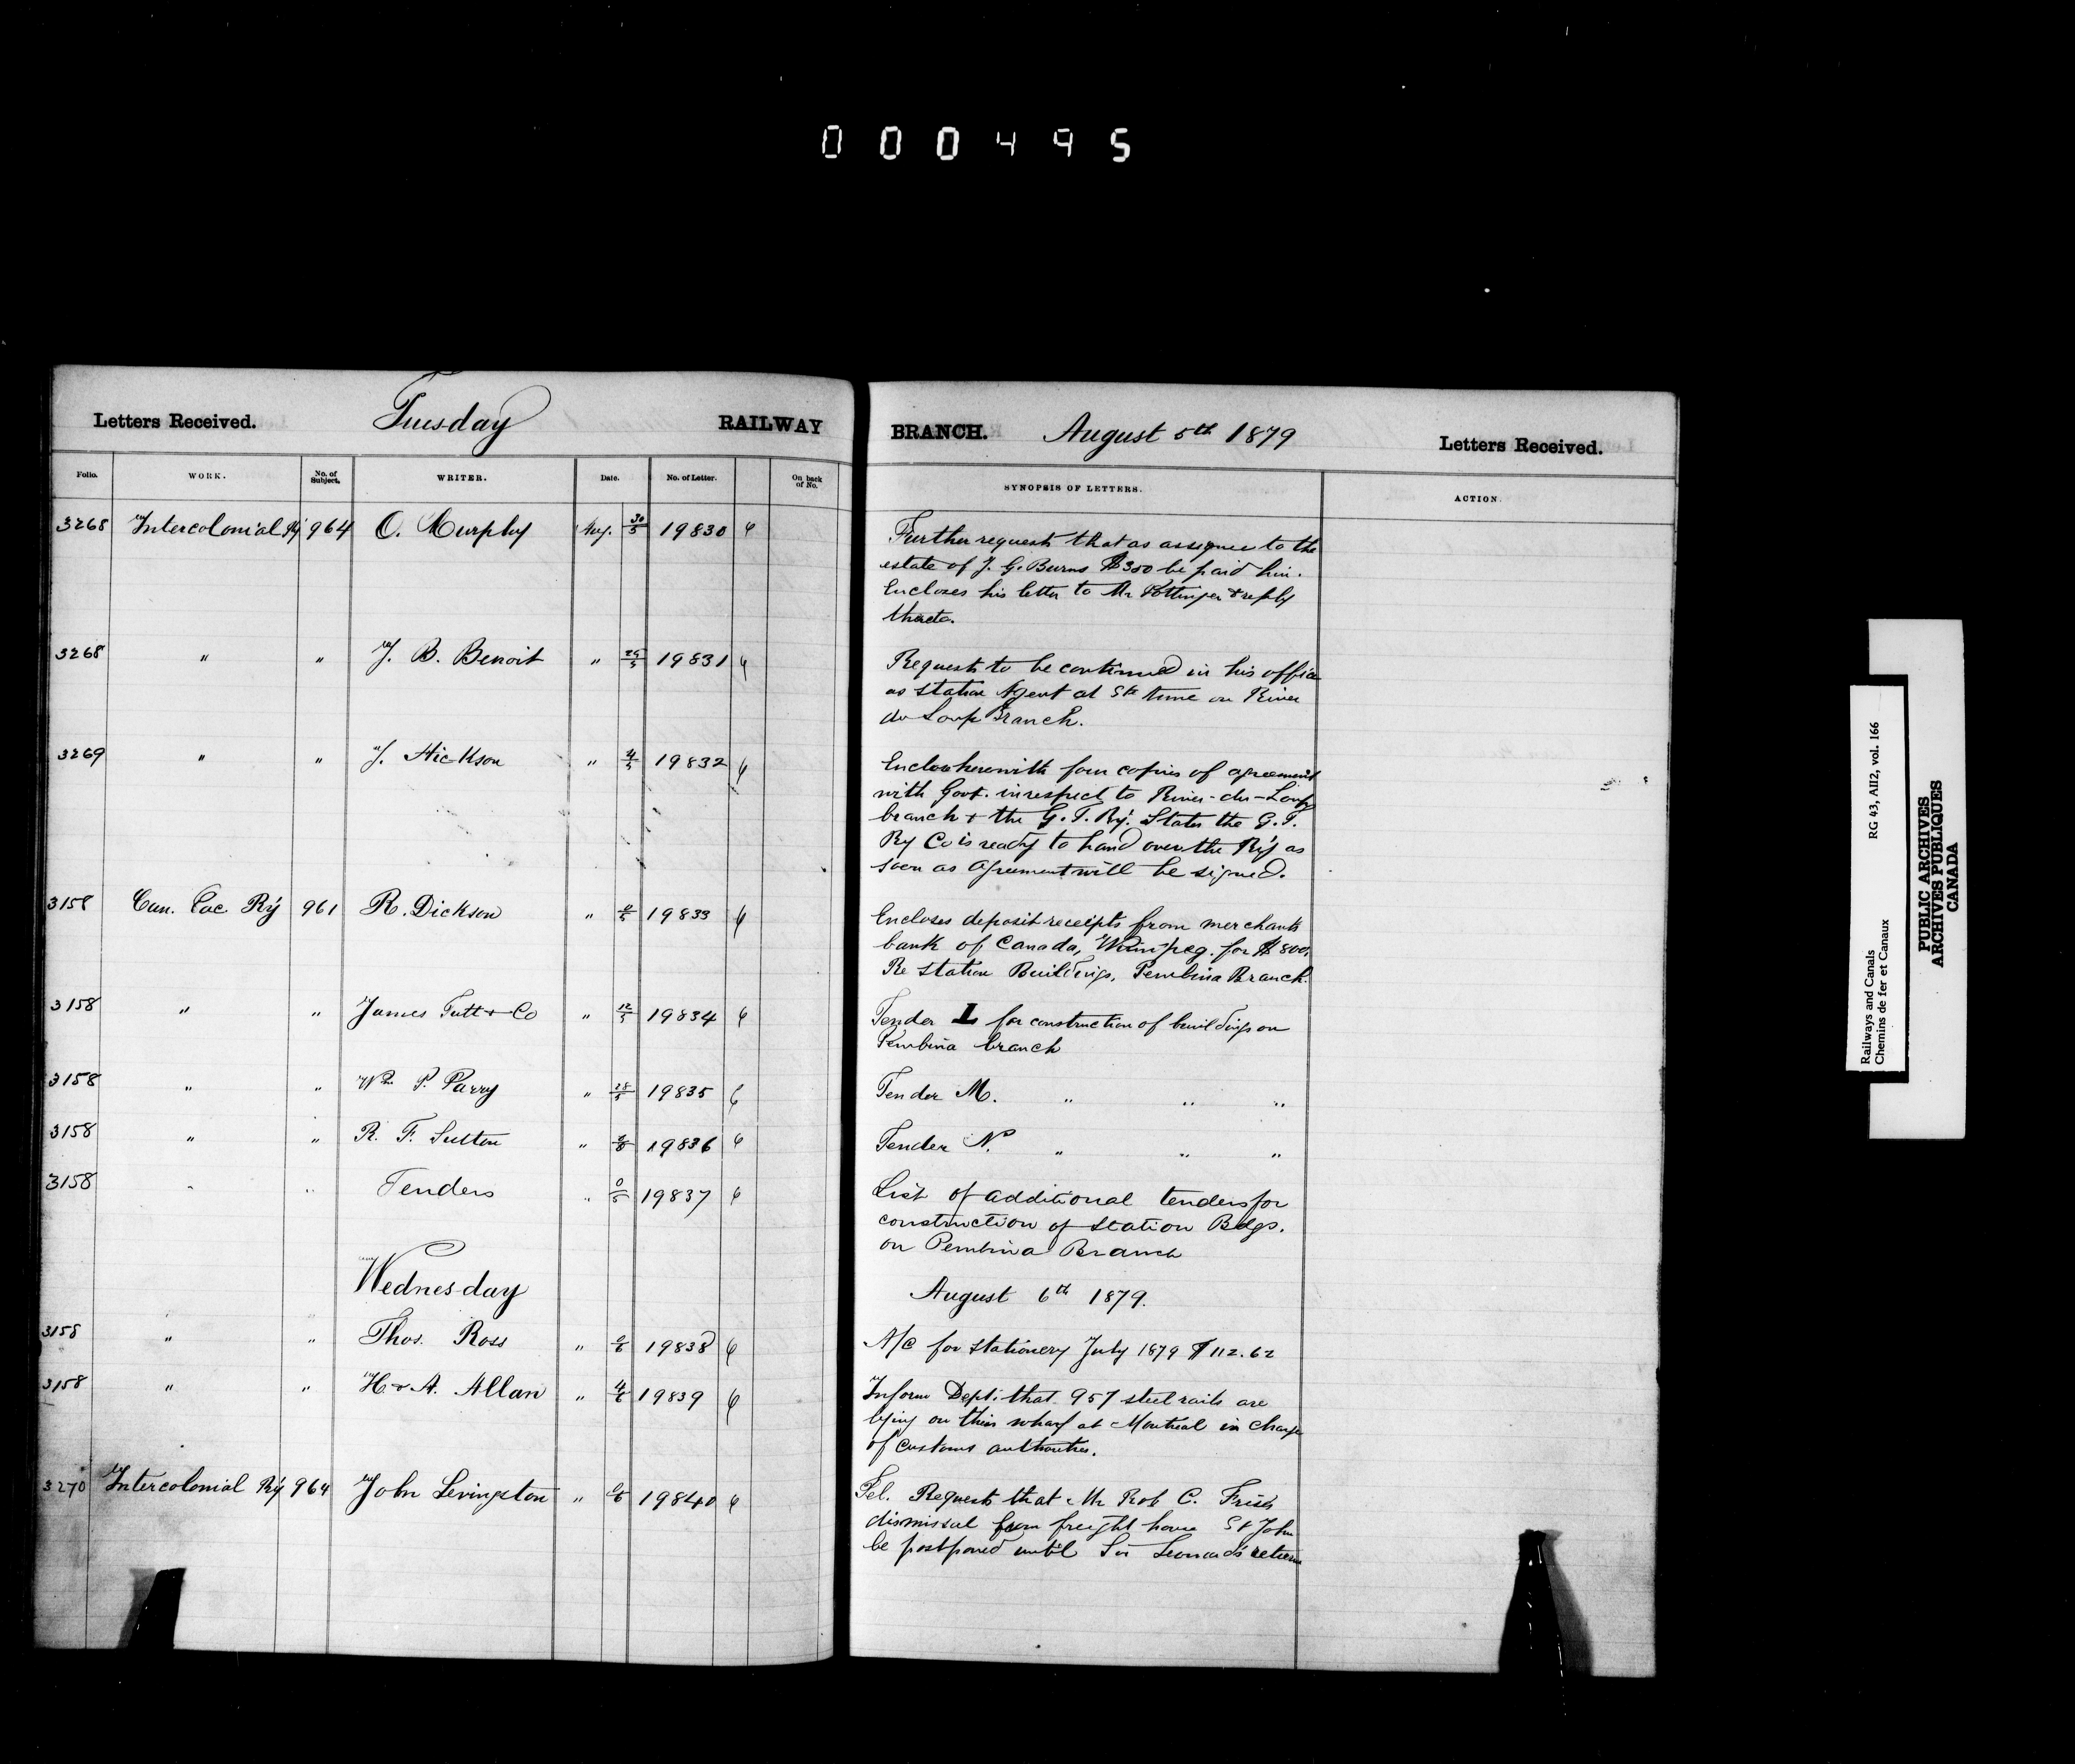 000495
Letters Received. Tuesday RAILWAY BRANCH. August 5th 1879 Letters Received.
Folio. WORK. No. of Subject. WRITER. Date. No. of Letter. On back of No. SYNOPSIS OF LETTERS. ACTION.
3268 Intercolonial Ry 964 O. Murphy Aug. 30/5 19830 Further requests that as assignee to the
estate of J. G. Burns $350 be paid him.
Encloses his letter to Mr Pottinger & reply
thereto.
3268 " " J. B. Benoit " 25/5 19831 Requests to be continued in his office
as station Agent at Ste Anne on River
du Loup Branch.
3269 " " J. Hickson " 4/5 19832 Enclose herewith four copies of agreement
with Govt. in respect to River-du-Loup
branch & the G. T. Ry. States the G. T.
Ry Co is ready to hand over the Ry as
soon as agreement will be signed.
3158 Can. Pac Ry 961 R. Dickson " 0/5 19833 Encloses deposit receipts from merchants
bank of Canada, Winnipeg. for $800.
Re station Buildings, Pembina Branch.
3158 " " James Tutt & Co " 12/5 19834 Tender L for construction of buildings on
Pembina branch
3158 " " Wm P. Parry " 28/5 19835 Tender M. " " "
3158 " " R. F. Sutton " 19836 Tender N. " " "
3158 " " Tenders " 0/5 19837 List of additional tenders for
construction of Station Bdgs.
on Pembina Branch
Wednesday August 6th 1879.
3158 " " Thos. Ross " 0/6 19838 A/C for Stationery July 1879 $112.62
3158 " " H & A. Allan " 4/6 19839 Inform Dept. that 957 steel rails are
lying on their wharf at Montreal in charge
of customs authorities.
3270 Intercolonial Ry 964 John Livingston " 0/6 19840 Tel. Requests that Mr Rob C.
dismissal from freight house St John
be postponed until Sir Leonard's return
Railways and Canals RG 43, AII2, vol. 166
Chemins de fer et Canaux
PUBLIC ARCHIVES
ARCHIVES PUBLIQUES
CANADA